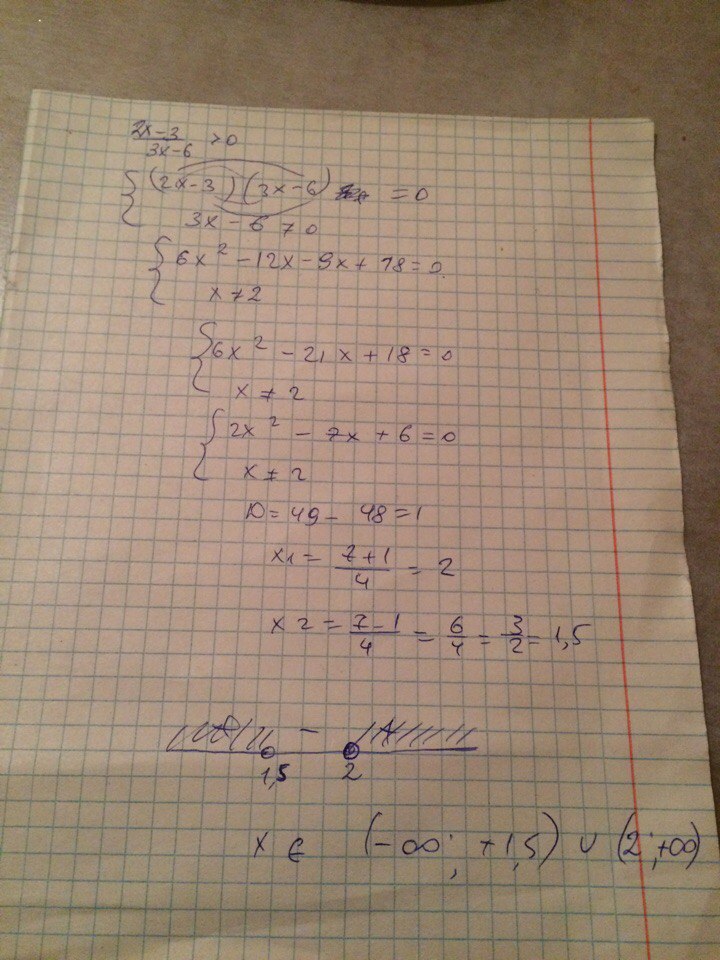 2x-3
3x-6 >0
{ (2x-3)(3x-6) = 0
3x - 6 ≠ 0
{ 6x² - 12x - 9x + 18 = 0
x ≠ 2
{ 6x² - 21x + 18 = 0
x ≠ 2
{ 2x² - 7x + 6 = 0
x ≠ 2
D = 49 - 48 = 1
x1 = (7+1)/4 = 2
x2 = (7-1)/4 = 6/4 = 3/2 = 1,5
+ - +
1,5 2
x ∈ (-∞; +1,5) ∪ (2; +∞)